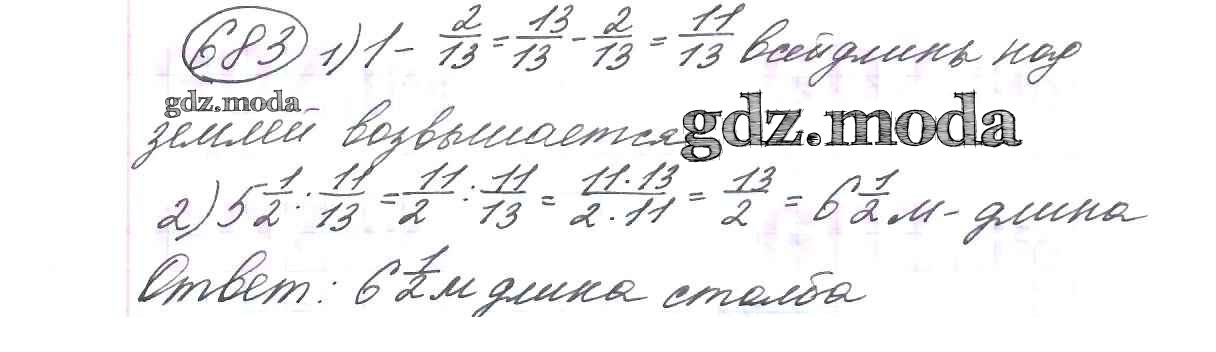 683 1) 1 - 2/13 = 13/13 - 2/13 = 11/13 всей длины над
gdz.moda
землёй возвышается
gdz.moda
2) 5 1/2 : 11/13 = 11/2 : 11/13 = 11·13/2·11 = 13/2 = 6 1/2 м - длина
Ответ: 6 1/2 м длина столба